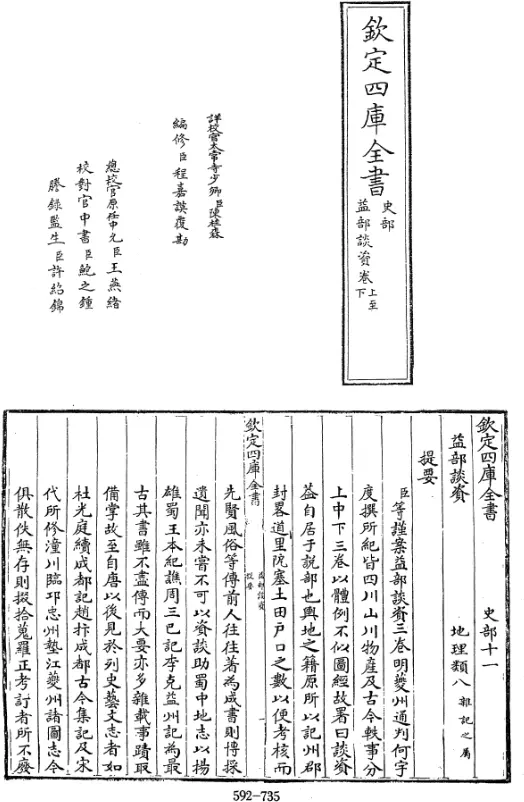 欽定四庫全書
史部
益部談資卷上至
下
詳校官太常寺少卿臣陳桂森
編修臣程嘉謨覆勘
總校官原任中允臣王燕緒
校對官中書臣鮑之鍾
謄錄監生臣許紹錦
欽定四庫全書
史部十一
益部談資
地理類八 雜記之屬
提要
臣等謹案益部談資三卷明夔州通判何宇
度撰所紀皆四川山川物產及古今軼事分
上中下三卷以體例不似圖經故署曰談資
葢自居于說部也輿地之籍原所以記州郡
封畧道里阨塞土田戶口之數以便考核而
欽定四庫全書
益部談資
提要
先賢風俗等傳前人往往著為成書則博採
遺聞亦未嘗不可以資談助蜀中地志以揚
雄蜀王本紀譙周三巴記李克益州記為最
古其書雖不盡傳而大要亦多雜載事蹟取
備掌故至自唐以後見於列史藝文志者如
杜光庭續成都記趙抃成都古今集記及宋
代所修潼川臨邛忠州墊江夔州諸圖志今
俱散佚無存則掇拾蒐羅正考訂者所不廢
592-735